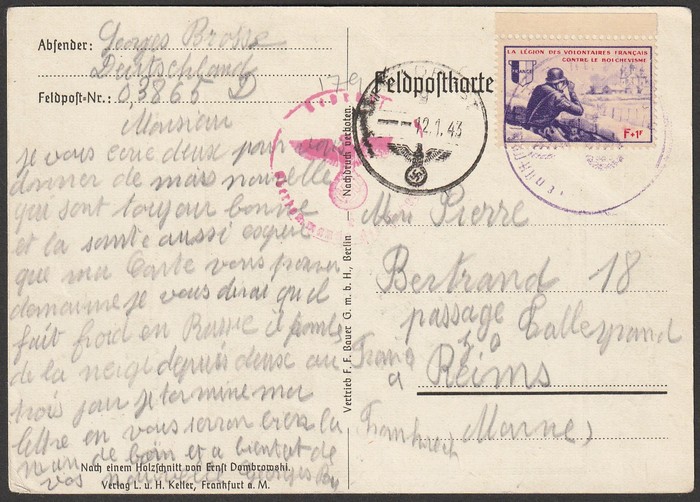 Absender: Georges Brosse
Deutschland
Feldpost-Nr.: 03865 D
179
Feldpostkarte
Monsieur
je vous ecric deux pour vous
donner de mais nouvelle
qui sont toujour bonne
et la sante aussi espere
que ma Carte vous
je vous dirai qu il
fait froid en Russie il tombe
de la neige depuis deux au
trois jour je termine ma
lettre en vous serran la
main de loin et a bientot de
vos nouvelle Georges
Nach einem Holzschnitt von Ernst Dombrowski.
Verlag L. u. H. Keller, Frankfurt a. M.
Nachdruck verboten.
Vertrieb F. F. Bauer G. m. b. H., Berlin
12.1.43
LA LÉGION DES VOLONTAIRES FRANÇAIS
CONTRE LE BOLCHEVISME
FRANCE
F+1F
Mon Pierre
Bertrand 18
passage Talleyrand
a Reims
(Marne)
Frankreich